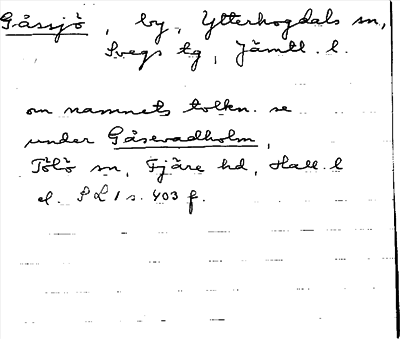 Gåssjö, by, Ytterhogdals sn,
Svegs tg, Jämtl. l.
om namnets tolkn. se
under Gåsevadholm,
Tölö sn, Fjäre hd, Hall. l
el. PL 1 s. 403 f.